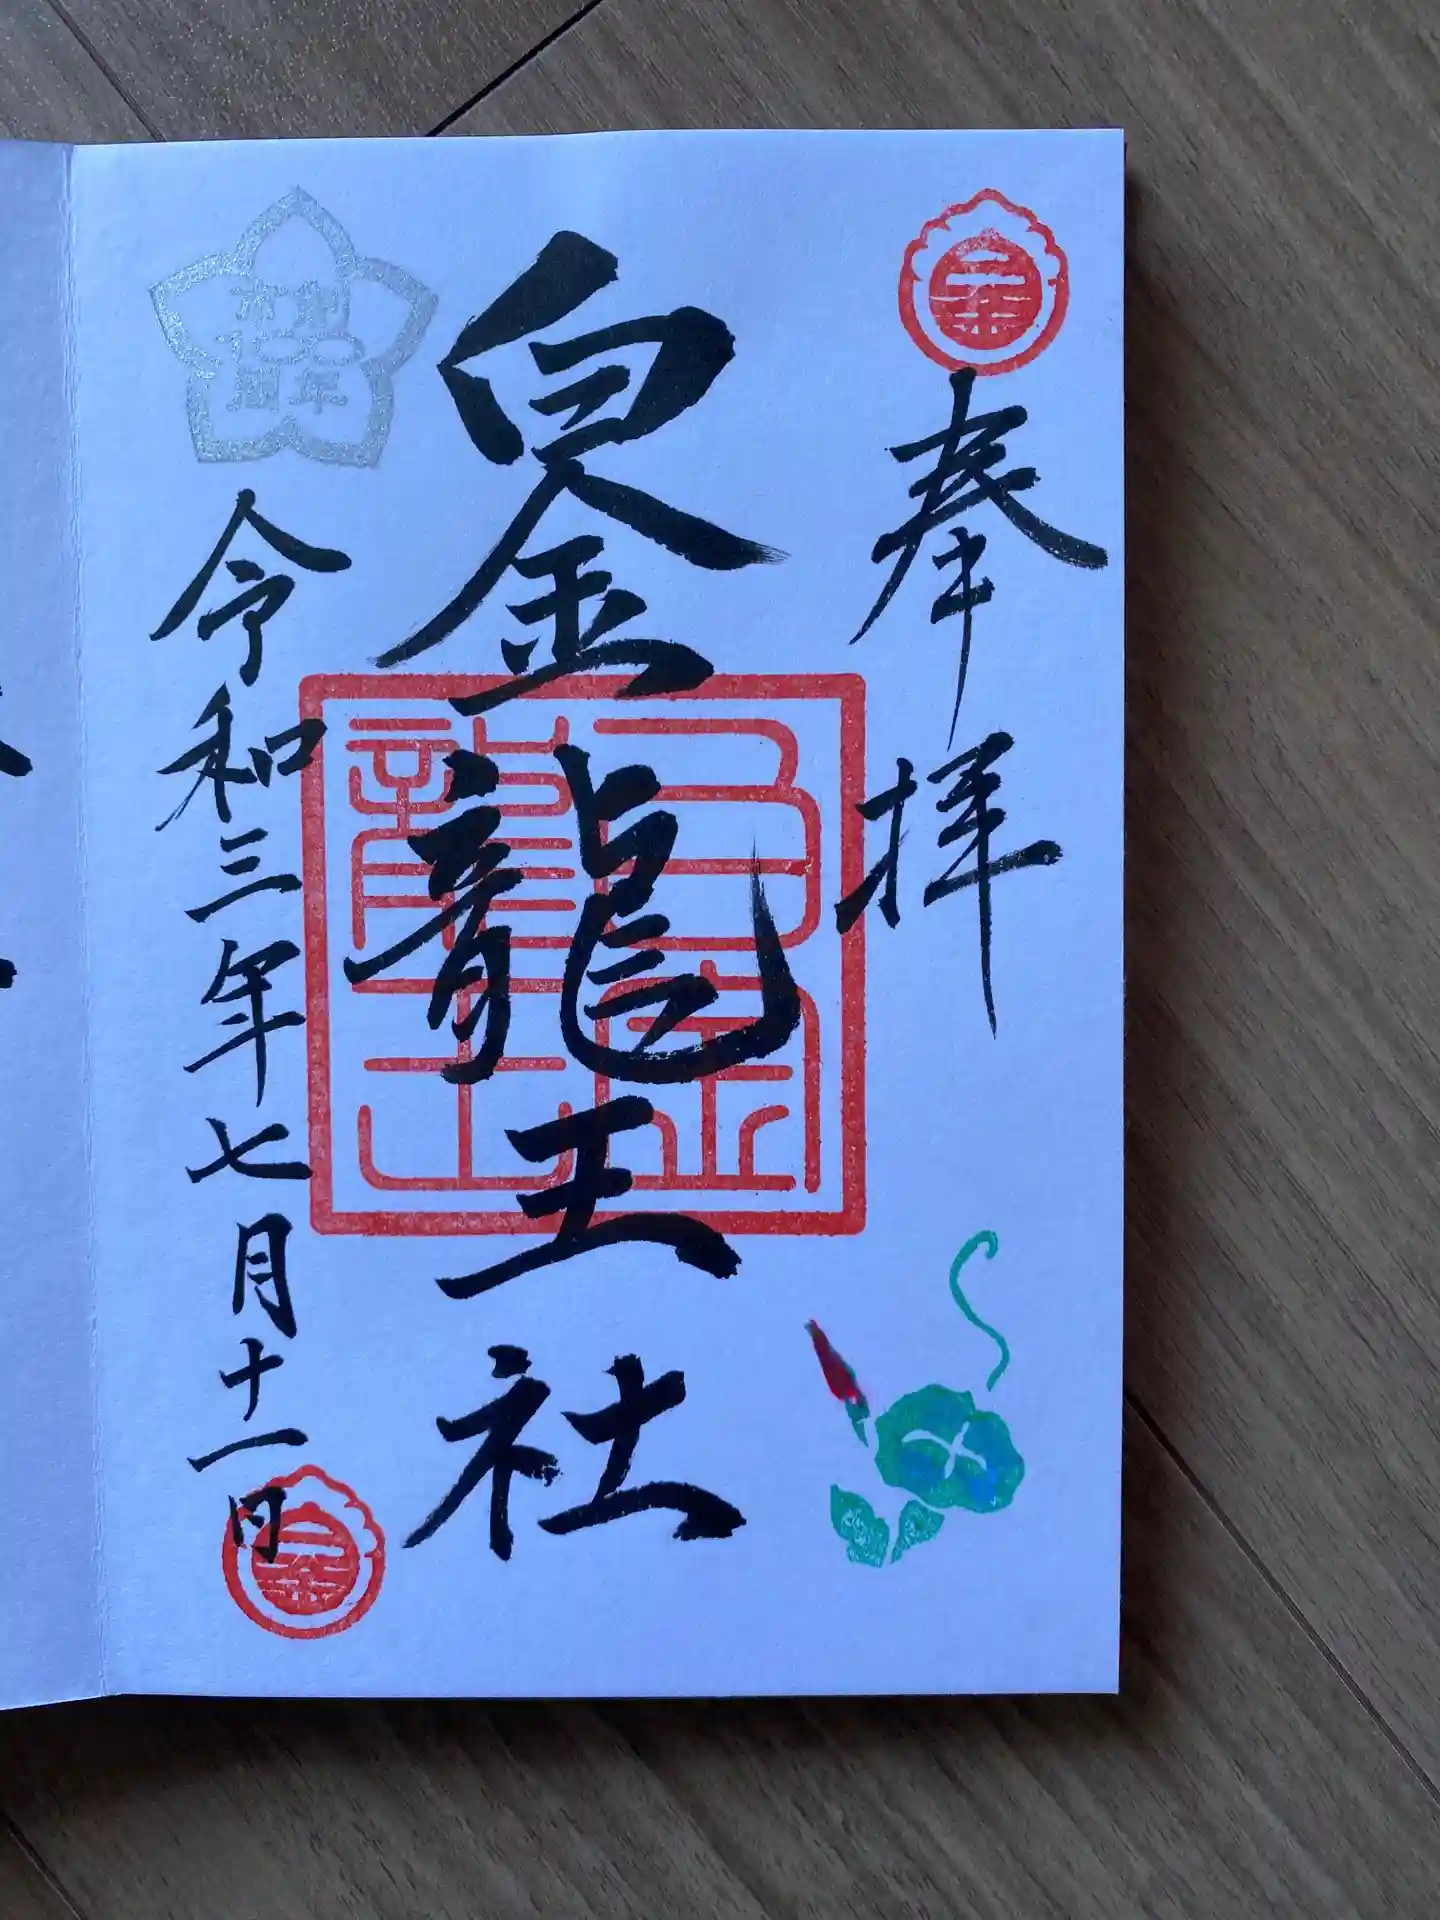 奉拝
白金龍王社
令和三年七月十一日